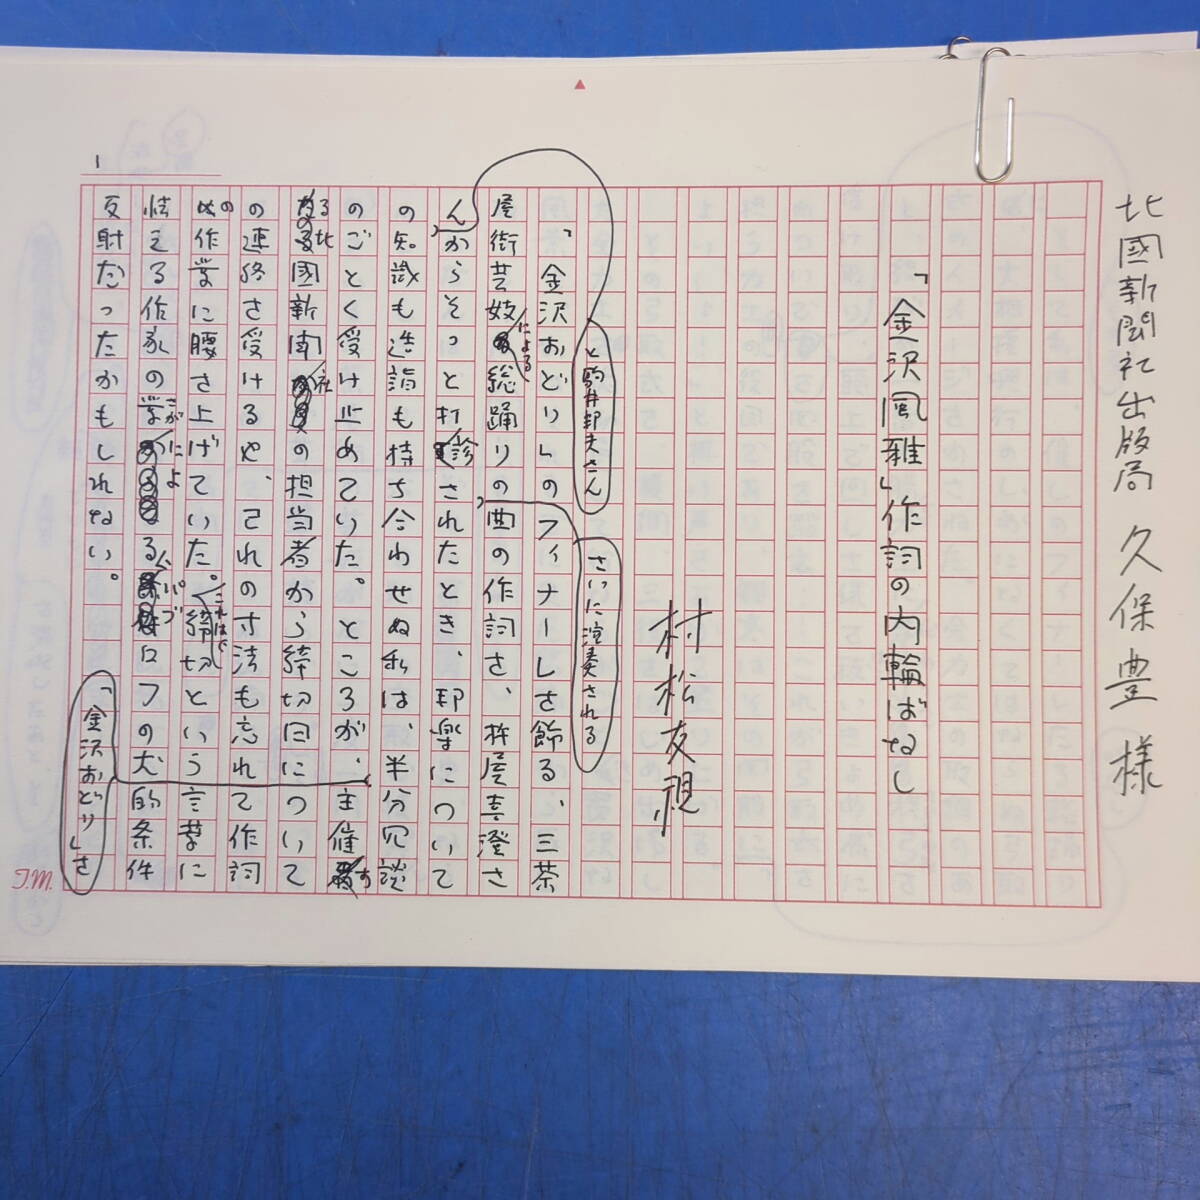 北國新聞社出版局 久保豊 様
「金沢風雅」作詞の内輪ばなし
村松友視
と駒井邦夫さん
さいに演奏される
「金沢おどり」のフィナーレを飾る、三茶
屋街芸妓による総踊りの曲の作詞を、杵屋喜澄さ
ん、からそっと打診されたとき、邦楽について
の知識も造詣も持ち合わせぬ私は、半分冗談
のごとく受け止めていた。ところが、主催
なる北國新聞社の担当者から締切日について
の連絡を受けるや、己れの寸法も忘れて作詞
の作業に腰を上げていた。これはで締切という言葉に
怯える作家の業がによるパブロフの犬的条件
反射だったかもしれない。
「金沢おどり」を
1
T.M.